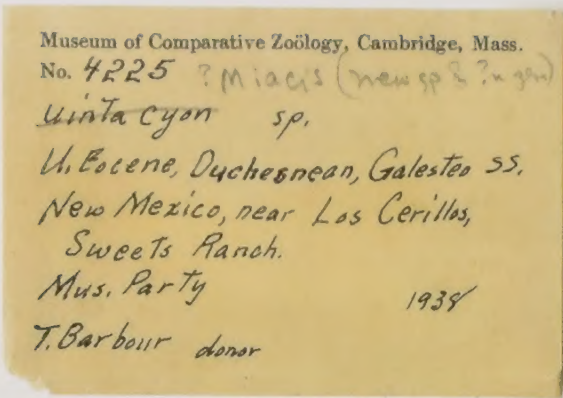 Museum of Comparative Zoölogy, Cambridge, Mass.
No. 4225 ? Miacis (new sp & ? n gen)
Uinta cyon sp.
U. Eocene, Duchesnean, Galesteo ss.
New Mexico, near Los Cerillos,
Sweets Ranch.
Mus. Party 1938
T. Barbour donor